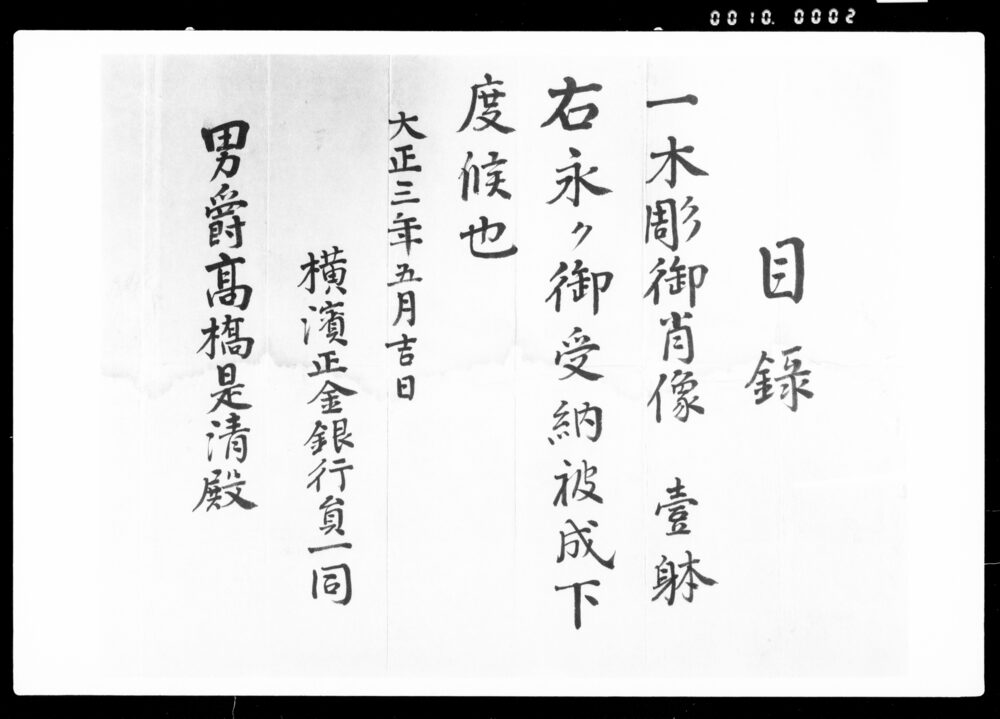 0010. 0002
目録
一木彫御肖像 壹躰
右永ク御受納被成下
度候也
大正三年五月吉日
横濱正金銀行員一同
男爵高橋是清殿